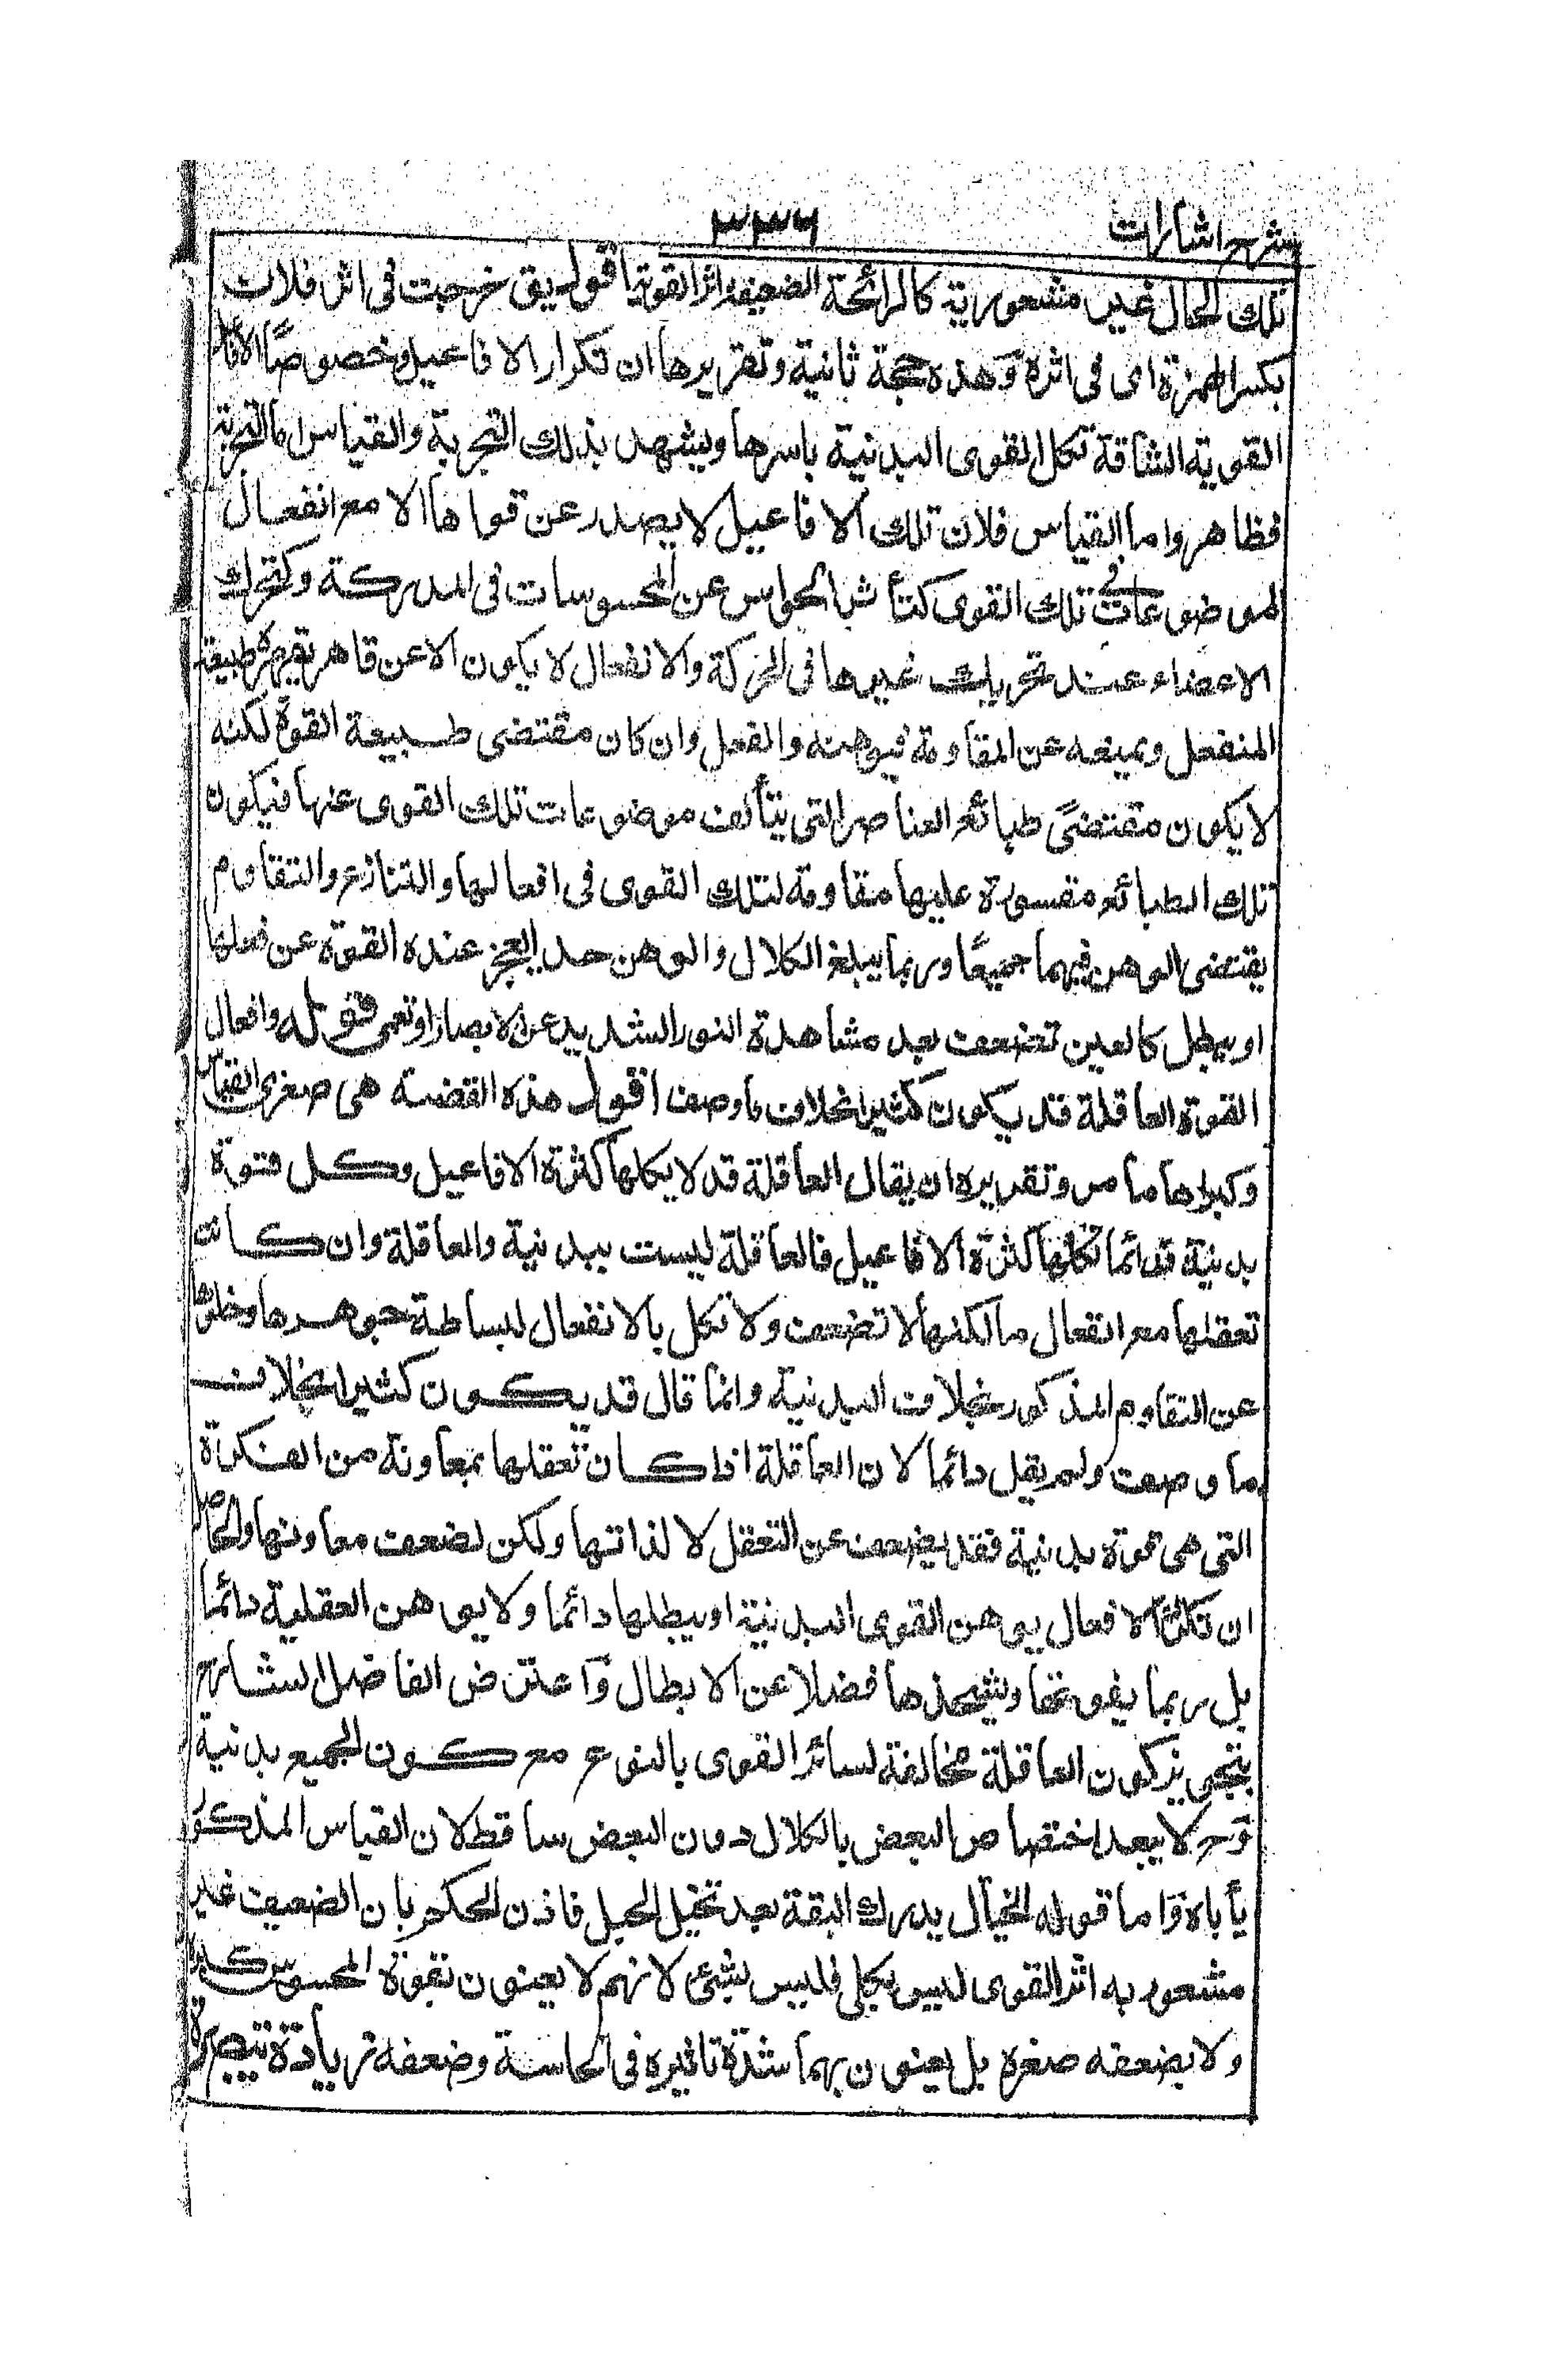 شرح اشارات
٣٣٦
تلك الحال غير مشعور بة كالرائحة الضعيفة اثر القوية اقول يق خرجت فى اثر فلان
بكسر الهمزة اى فى اثره وهذه حجة ثانية وتقريرها ان تكرار الافاعيل وخصوصًا الافاعيل
القوية الشاقة تكل القوى البدنية باسرها ويشهد بذلك التجربة والقياس اما التجربة
فظاهر واما القياس فلان تلك الافاعيل لا يصدر عن قواها الا مع انفعال
لموضوعات تلك القوى كتأثر الحواس عن المحسوسات فى المدركة وكتحرك
الاعضاء عند تحريك غيرها فى المحركة والانفعال لا يكون الا عن قاهر يقهر طبيعة
المنفعل ويمنعه عن المقاومة فيوهنه والفعل وان كان مقتضى طبيعة القوة لكنه
لا يكون مقتضىً طبائع العناصر التى يتألف موضوعات تلك القوى عنها فيكون
تلك الطبائع مقسورة عليها مقاومة لتلك القوى فى افعالها والتنازع والتقاوم
يقتضى الوهن فيهما جميعًا وربما يبلغ الكلال والوهن حد العجز عنده القوة عن فعلها
او يبطل كالعين تضعف بعد مشاهدة النور الشديد عن الابصار او تعمى قوله وافعال
القوة العاقلة قد يكون كثيرا بخلاف ما وصف اقول هذه القضية هى صغرى القياس
وكبراها ما مر وتقريره ان يقال العاقلة قد لا يكلها كثرة الافاعيل وكل قوة
بدنية قدائما تكلها كثرة الافاعيل فالعاقلة ليست ببدنية والعاقلة وان كانت
تعقلها مع انفعال ما لكنها لا تضعف ولا تكل بالانفعال لبساطة جوهرها وخلوها
عن التقاوم المذكور بخلاف البدنية وانما قال قد يكون كثيرا بخلاف
ما وصف ولم يقل دائما لان العاقلة اذا كان تعقلها بمعاونة من الفكرة
التى هى قوة بدنية فقد يضعف عن التعقل لا لذاتها ولكن لضعف معاونها والحاصل
ان تكثر الافعال يوهن القوى البدنية او يبطلها دائما ولا يوهن العقلية دائما
بل ربما يقويها ويشحذها فضلا عن الابطال وآعترض الفاضل الشارح
بتجويز كون العاقلة مخالفة لسائر القوى بالنوع مع كون الجميع بدنية
وح لا يبعد اختصاص البعض بالكلال دون البعض ساقط لان القياس المذكور
يأباه وآما قوله الخيال يدرك البقة بعد تخيل الجبل فاذن الحكم بان الضعيف غير
مشعور به اثر القوى ليس بكلى فليس بشئ لانهم لا يعنون بقوة المحسوس كبره
ولا بضعفه صغره بل يعنون بهما شدة تاثيره فى الحاسة وضعفه